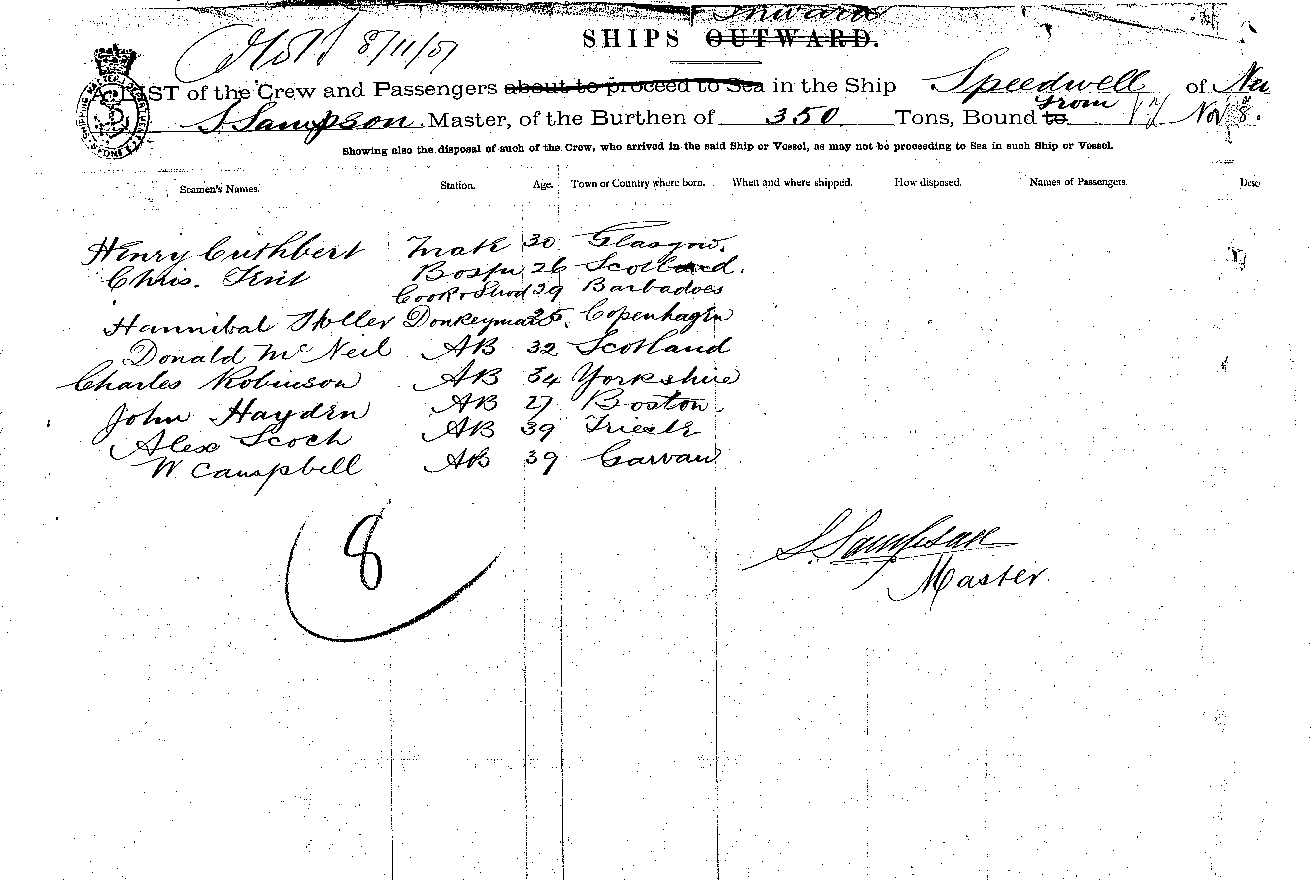 Inward
8/11/07
SHIPS OUTWARD.
A LIST of the Crew and Passengers about to proceed to Sea in the Ship Speedwell of
S Sampson Master, of the Burthen of 350 Tons, Bound to from
Showing also the disposal of such of the Crew, who arrived in the said Ship or Vessel, as may not be proceeding to Sea in such Ship or Vessel.
Seamen's Names. Station. Age. Town or Country where born. When and where shipped. How disposed. Names of Passengers.
Henry Cuthbert Mate 30 Glasgow.
Chris. Bosn 26 Scotland.
Cook & Stwd 29 Barbadoes
Hannibal Donkeyman 25. Copenhagen
Donald McNeil AB 32 Scotland
Charles Robinson AB 34 Yorkshire
John Hayden AB 27 Boston.
Alex Scoch AB 39 Trieste
W Campbell AB 39
8
S. Sampson
Master